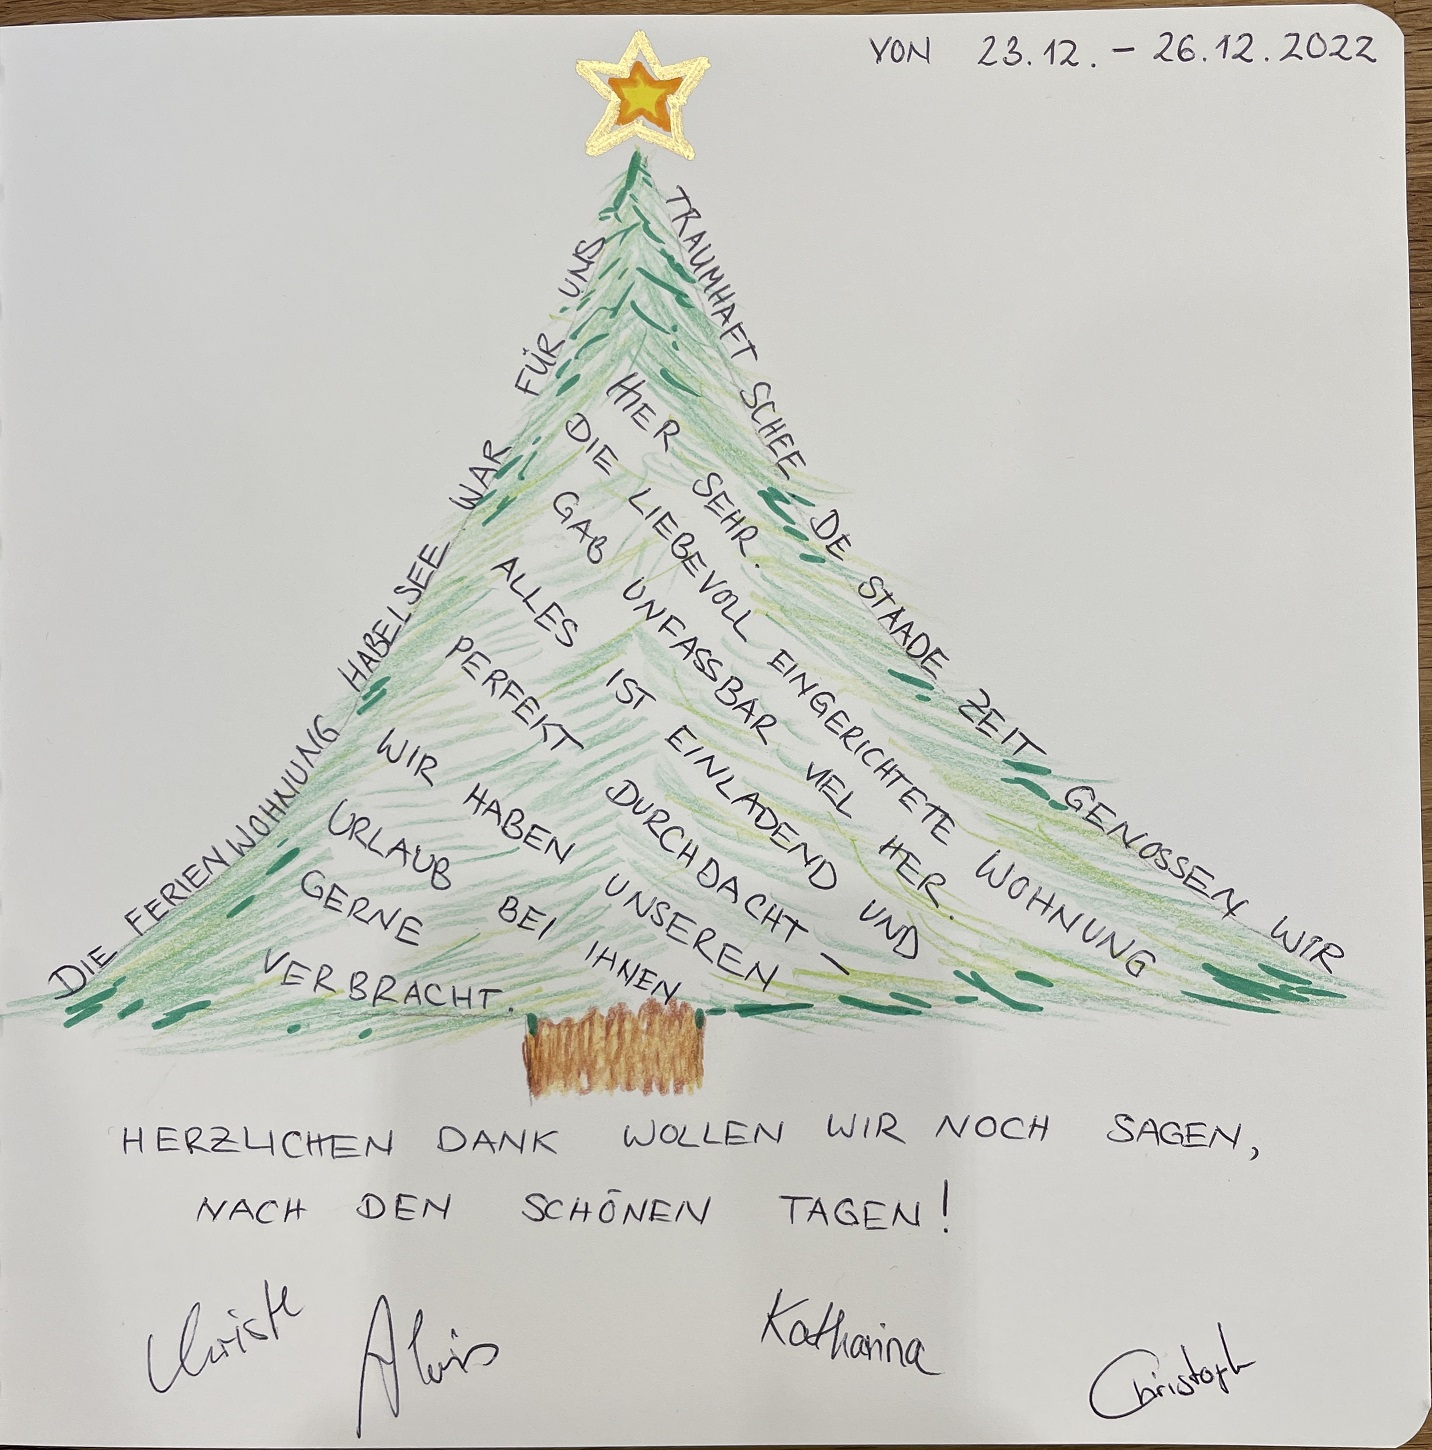 VON 23.12. – 26.12.2022
DIE FERIENWOHNUNG HABELSEE WAR FÜR UNS
TRAUMHAFT SCHEE, DE STAADE ZEIT GENOSSEN WIR
HIER SEHR.
DIE LIEBEVOLL EINGERICHTETE WOHNUNG
GAB UNFASSBAR VIEL HER.
ALLES IST EINLADEND UND
PERFEKT DURCHDACHT –
WIR HABEN UNSEREN
URLAUB BEI IHNEN
GERNE
VERBRACHT.
HERZLICHEN DANK WOLLEN WIR NOCH SAGEN,
NACH DEN SCHÖNEN TAGEN!
Christl Alois Katharina Christoph